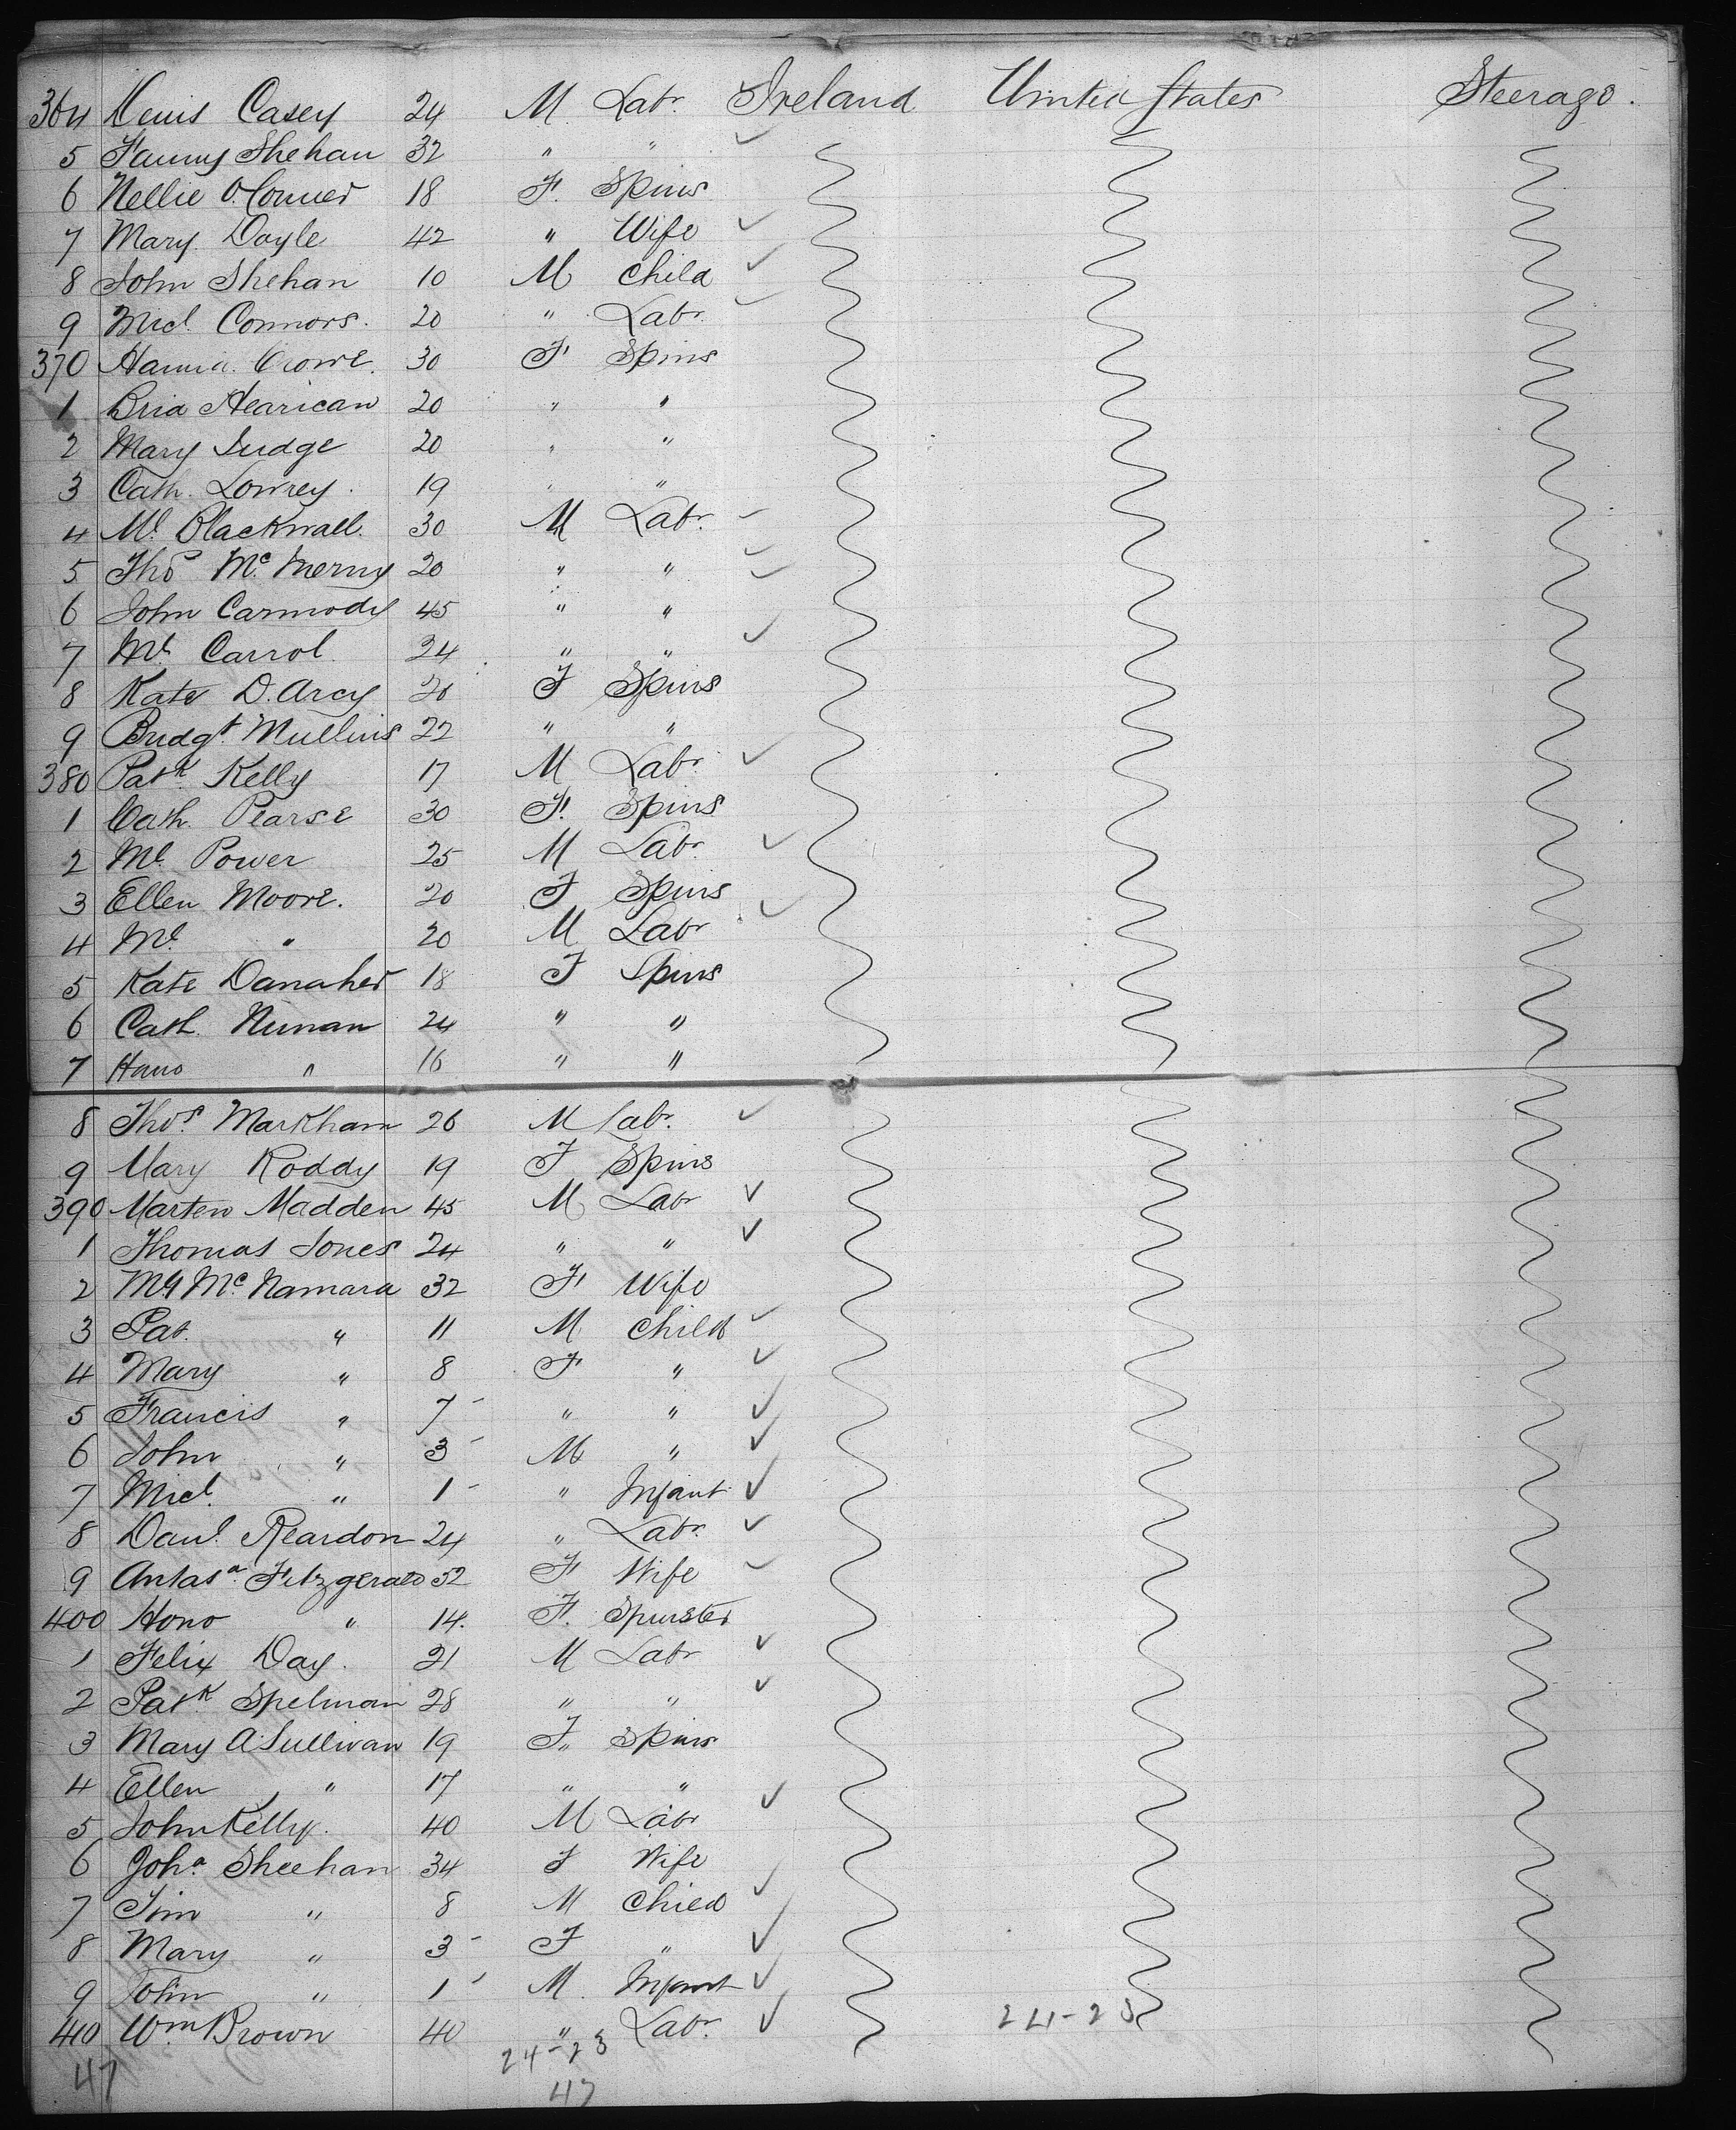 364 Denis Casey 24 M Labr. Ireland United States Steerage.
5 Fanny Shehan 32 " "
6 Nellie O.Conner 18 F. Spins
7 Mary Doyle 42 " Wife
8 John Shehan 10 M Child
9 Micl. Connors. 20 " Labr.
370 Hanna Crowe. 30 F Spins
1 Brid Hearican 20 " "
2 Mary Judge 20 " "
3 Cath. Lowrey. 19 " "
4 Ml. Blackwall. 30 M Labr.
5 Thos Mc. 20 " "
6 John Carmody 45 " "
7 Ml. Carrol 24 " "
8 Kate D. Arcy 20 F Spins
9 Bridgt. Mullins 22 " "
380 Patk. Kelly 17 M Labr.
1 Cath. Pearse 30 F. Spins
2 Ml. Power 25 M Labr.
3 Ellen Moore. 20 F Spins
4 Ml. " 20 M Labr
5 Kate Danaher 18 F Spins
6 Cath. Nunan 24 " "
7 Hano " 16 " "
8 Thos. Markham 26 M Labr.
9 Mary Roddy 19 F Spins
390 Marten Madden 45 M Labr
1 Thomas Jones 24 " "
2 My Mc. Namara 32 F Wife
3 Pat. " 11 M Child
4 Mary " 8 F "
5 Francis " 7 " "
6 John " 3 M "
7 Micl. " 1 " Infant
8 Danl. Reardon 24 " Labr.
9 Antasa. Fitzgerald 52 F Wife
400 Hono " 14. F. Spinster
1 Felix Day. 21 M Labr
2 Patk. Spelman 28 " "
3 Mary A. Sullivan 19 F. Spins
4 Ellen " 17 " "
5 John Kelly. 40 M Labr
6 Joha. Sheehan 34 F Wife
7 Tim " 8 M Child
8 Mary " 3 F "
9 John " 1 M. Infant
410 Wm Brown 40 " Labr.
24-23
24-23
47
47